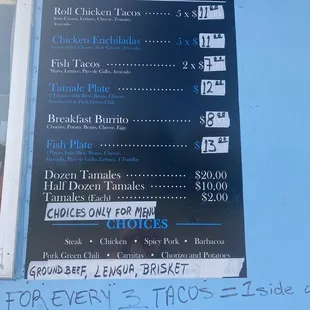 Roll Chicken Tacos 5 x $11
Sour Cream, Lettuce, Cheese, Tomato,
Avocado
Chicken Enchiladas 5 x $11
Fish Tacos 2 x $7
Slaw, Lettuce, Pico de Gallo, Avocado
Tamale Plate $12
Breakfast Burrito $8
Chorizo, Potato, Beans, Cheese, Eggs
Fish Plate $13
Avocado, Pico de Gallo, Lettuce, 4 Tortillas
Dozen Tamales $20.00
Half Dozen Tamales $10.00
Tamales (Each) $2.00
CHOICES ONLY FOR MENU
CHOICES
Steak • Chicken • Spicy Pork • Barbacoa
Pork Green Chili • Carnitas • Chorizo and Potatoes
GROUND BEEF, LENGUA, BRISKET
FOR EVERY 3 TACOS = 1 side